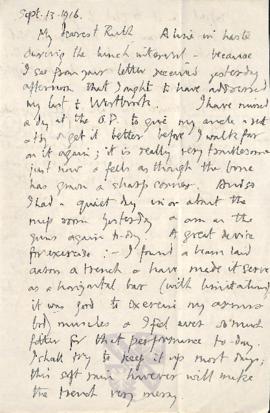 Sept. 13. 1916.
My dearest Ruth A line in haste
during the lunch interval - because
I see from your letter received yesterday
afternoon that I ought to have addressed
my last to Westbrook. I have missed
a day at the O.P. to give my ankle a rest
& try & get it better before I walk far
on it again; it is really very troublesome
just now & feels as though the bone
has grown a sharp corner. And so
I had a quiet day in or about the
map room yesterday & am on the
guns again to-day A great device
for exercise :- I found a beam laid
across a trench & have made it serve
as a horizontal bar (with limitations)
it was good to exercise my arms
but) muscles & I feel ever so much
better for that performance to-day.
I shall try to keep it up most days;
this soft rain however will make
the trench very messy.